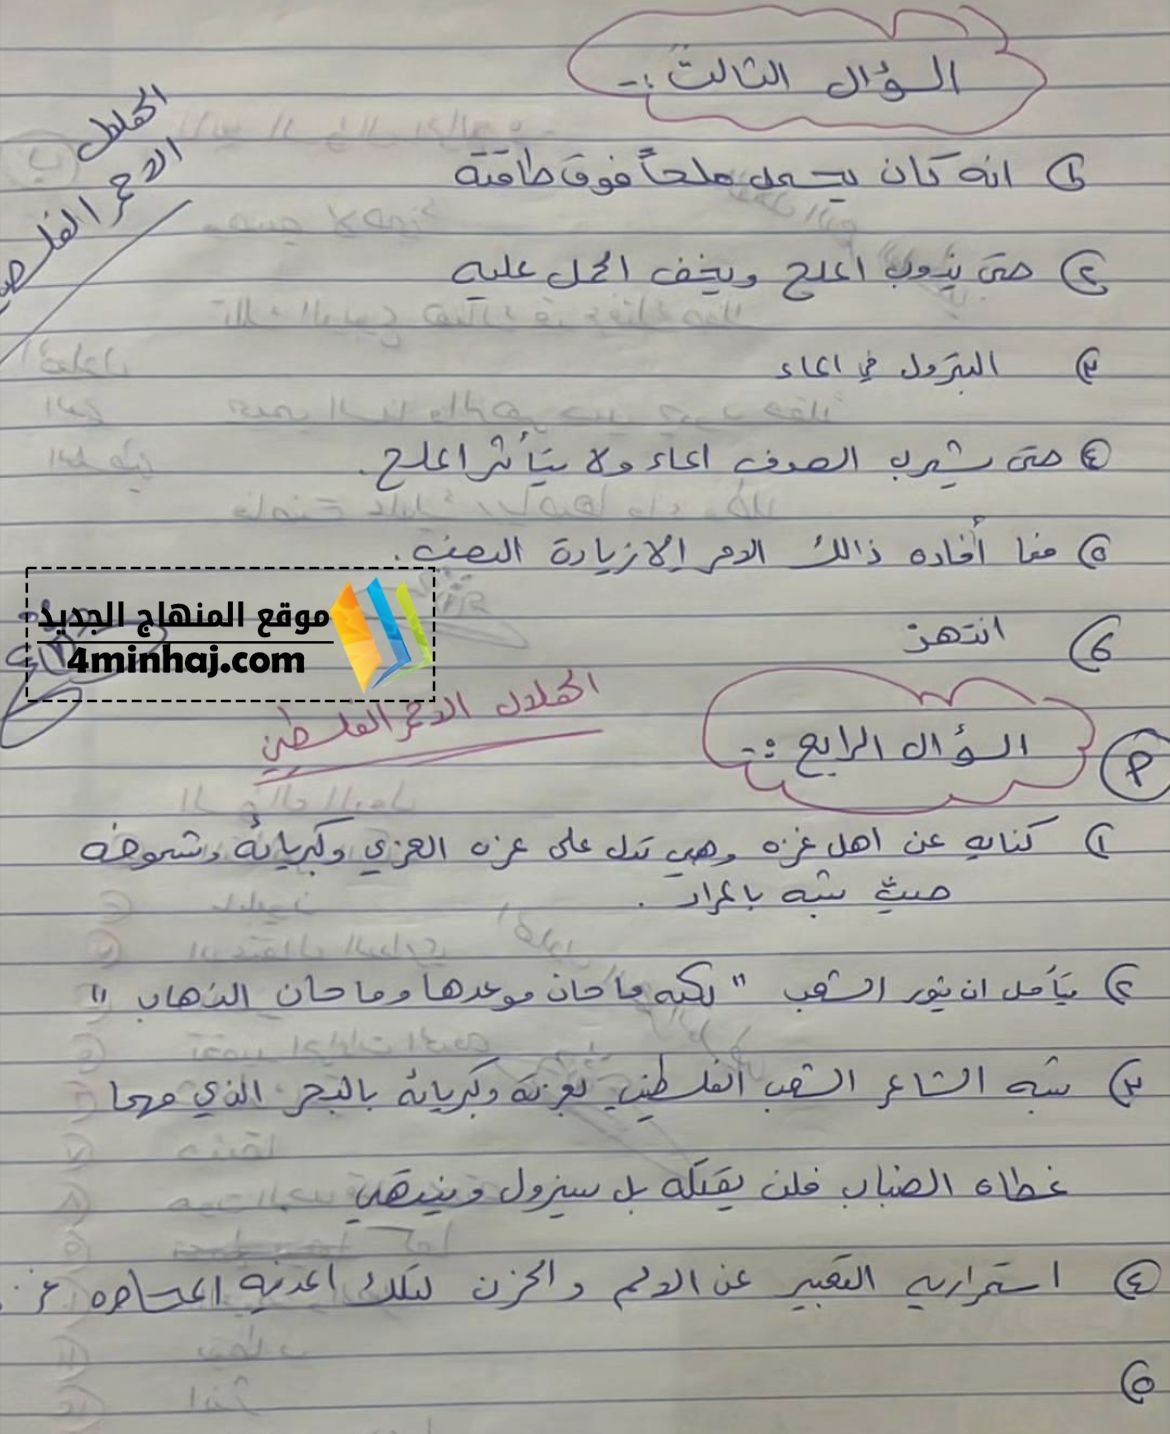 السؤال الثالث :-
الهلال
الاحمر الفلس
١ انه كان يحمل ملحاً فوق طاقته
٢ حتى يذوب الملح ويخف الحمل عليه
٣ البترول في الماء
٤ حتى يشرب الصوف الماء ولا يتأثر الملح.
٥ فما أفاده ذالك الامر إلا زيادة النصب.
موقع المنهاج الجديد
4minhaj.com
٦ انتهز
الهلال الاحمر الفلسطيني
السؤال الرابع :-
١ كنايه عن اهل غزه وهي تدل على عزه الغزي وكبريائه وشموخه
حيث شبه بالمراد.
٢ يتأمل ان يثور الشعب " لكنه ما حان موعدها وما حان الذهاب "
٣ شبه الشاعر الشعب الفلسطيني بعزته وكبريائه بالبحر الذي مهما
غطاه الضباب فلن يقتله بل سيزول وينتهي
٤ استمراريه التعبير عن الالم والحزن لتلك المدنيه المحاصره غز
٥